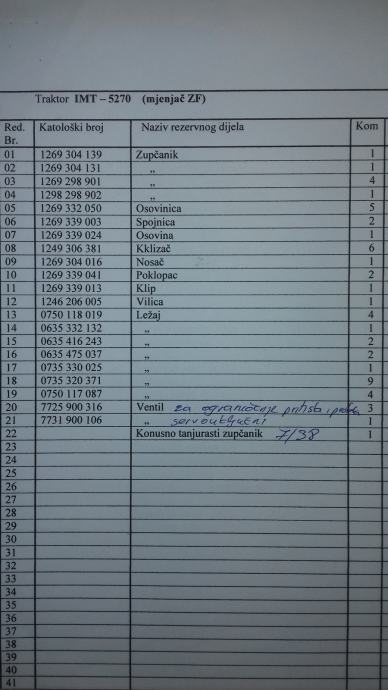 Traktor IMT – 5270 (mjenjač ZF)
Red. Br. Katološki broj Naziv rezervnog dijela Kom
01 1269 304 139 Zupčanik 1
02 1269 304 131 „ 1
03 1269 298 901 „ 4
04 1298 298 902 „ 1
05 1269 332 050 Osovinica 5
06 1269 339 003 Spojnica 2
07 1269 339 024 Osovina 1
08 1249 306 381 Kklizač 6
09 1269 304 016 Nosač 1
10 1269 339 041 Poklopac 2
11 1269 339 013 Klip 1
12 1246 206 005 Vilica 1
13 0750 118 019 Ležaj 4
14 0635 332 132 „ 1
15 0635 416 243 „ 2
16 0635 475 037 „ 2
17 0735 330 025 „ 1
18 0735 320 371 „ 9
19 0750 117 087 „ 4
20 7725 900 316 Ventil za ograničenje pritiska 3
21 7731 900 106 „ 1
22 Konusno tanjurasti zupčanik 7/38 1
23
24
25
26
27
28
29
30
31
32
33
34
35
36
37
38
39
40
41